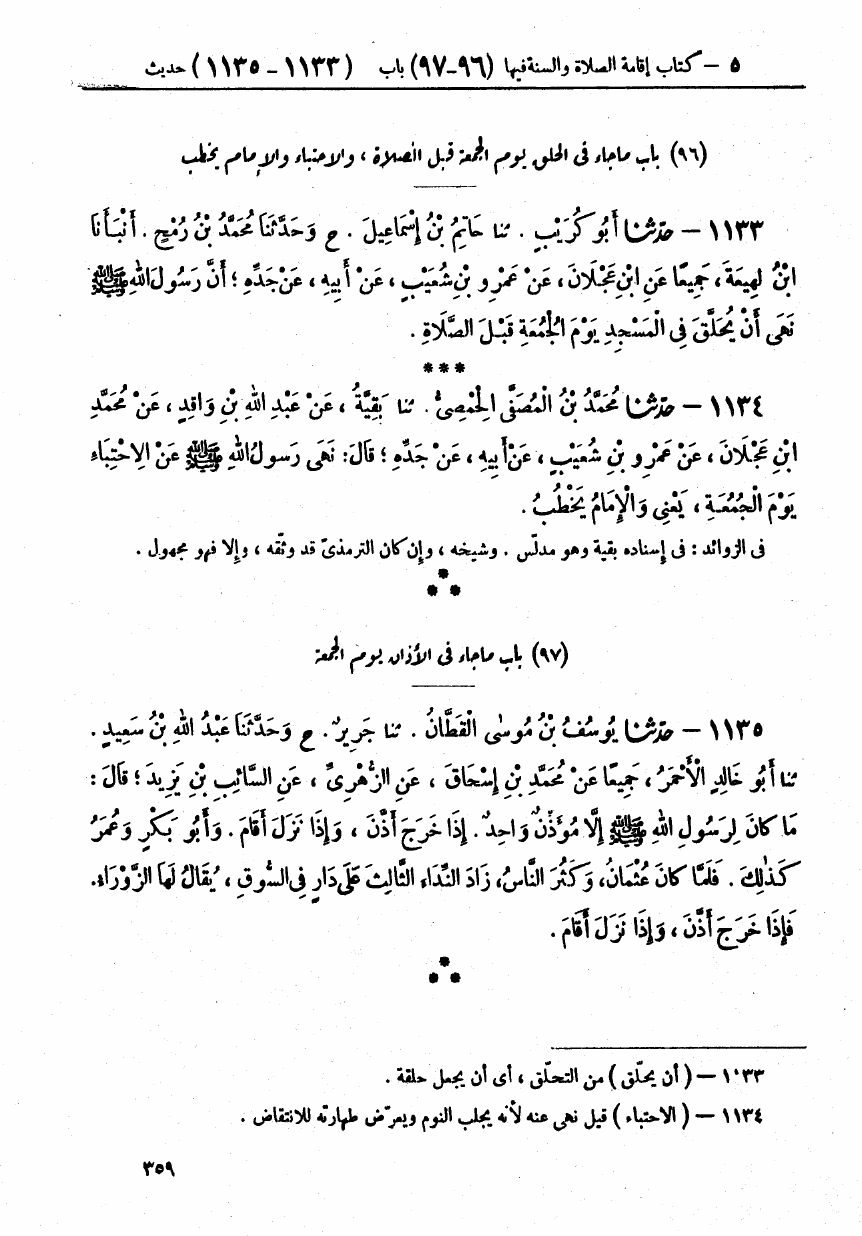 ٥ – كتاب إقامة الصلاة والسنة فيها (٩٦-٩٧) باب (١١٣٣ - ١١٣٥) حديث
(٩٦) باب ماجاء فى الحلق يوم الجمعة قبل الصلاة ، والاحتباء والإمام يخطب
١١٣٣ – حدّثنا أَبُو كُرَيْبٍ . ثنا حَاتِمُ بْنُ إِسْمَاعِيلَ . ح وَحَدَّثَنَا مُحَمَّدُ بْنُ رُمْحٍ . أَنْبَأَنَا
ابْنُ لَهِيعَةَ ، جَمِيعًا عَنِ ابْنِ عَجْلَانَ ، عَنْ عَمْرِو بْنِ شُعَيْبٍ ، عَنْ أَبِيهِ ، عَنْ جَدِّهِ ؛ أَنَّ رَسُولَ اللهِ ﷺ
نَهَى أَنْ يُحَلَّقَ فِى الْمَسْجِدِ يَوْمَ الْجُمُعَةِ قَبْلَ الصَّلَاةِ .
***
١١٣٤ – حدّثنا مُحَمَّدُ بْنُ الْمُصَفَّى الْحِمْصِىُّ . ثنا بَقِيَّةُ ، عَنْ عَبْدِ اللهِ بْنِ وَاقِدٍ ، عَنْ مُحَمَّدِ
ابْنِ عَجْلَانَ ، عَنْ عَمْرِو بْنِ شُعَيْبٍ ، عَنْ أَبِيهِ ، عَنْ جَدِّهِ ؛ قَالَ: نَهَى رَسولُ اللهِ ﷺ عَنْ الِاحْتِبَاءِ
يَوْمَ الْجُمُعَةِ ، يَعْنِى وَالْإِمَامُ يَخْطُبُ .
فى الزوائد : فى إسناده بقية وهو مدلّس . وشيخه ، وإن كان الترمذىّ قد وثّقه ، وإلا فهو مجهول .
*
* *
(٩٧) باب ماجاء فى الأذان يوم الجمعة
١١٣٥ – حدّثنا يُوسُفُ بْنُ مُوسَى الْقَطَّانُ . ثنا جَرِيرٌ . ح وَحَدَّثَنَا عَبْدُ اللهِ بْنُ سَعِيدٍ .
ثنا أَبُو خَالِدٍ الْأَحْمَرُ ، جَمِيعًا عَنْ مُحَمَّدِ بْنِ إِسْحَاقَ ، عَنِ الزُّهْرِىِّ ، عَنِ السَّائِبِ بْنِ يَزِيدَ ؛ قَالَ :
مَا كَانَ لِرَسُولِ اللهِ ﷺ إِلَّا مُؤَذِّنٌ وَاحِدٌ . إِذَا خَرَجَ أَذَّنَ ، وَإِذَا نَزَلَ أَقَامَ . وَأَبُو بَكْرٍ وَعُمَرُ
كَذٰلِكَ . فَلَمَّا كَانَ عُثْمَانُ، وَكَثُرَ النَّاسُ، زَادَ النِّدَاءَ الثَّالِثَ عَلَى دَارٍ فِى السُّوقِ ، يُقَالُ لَهَا الزَّوْرَاء.
فَإِذَا خَرَجَ أَذَّنَ ، وَإِذَا نَزَلَ أَقَامَ .
*
* *
١٠٣٣ – ( أن يحلّق ) من التحلّق ، أى أن يجعل حلقة .
١١٣٤ – ( الاحتباء ) قيل نهى عنه لأنه يجلب النوم ويعرّض طهارته للانتقاض .
٣٥٩